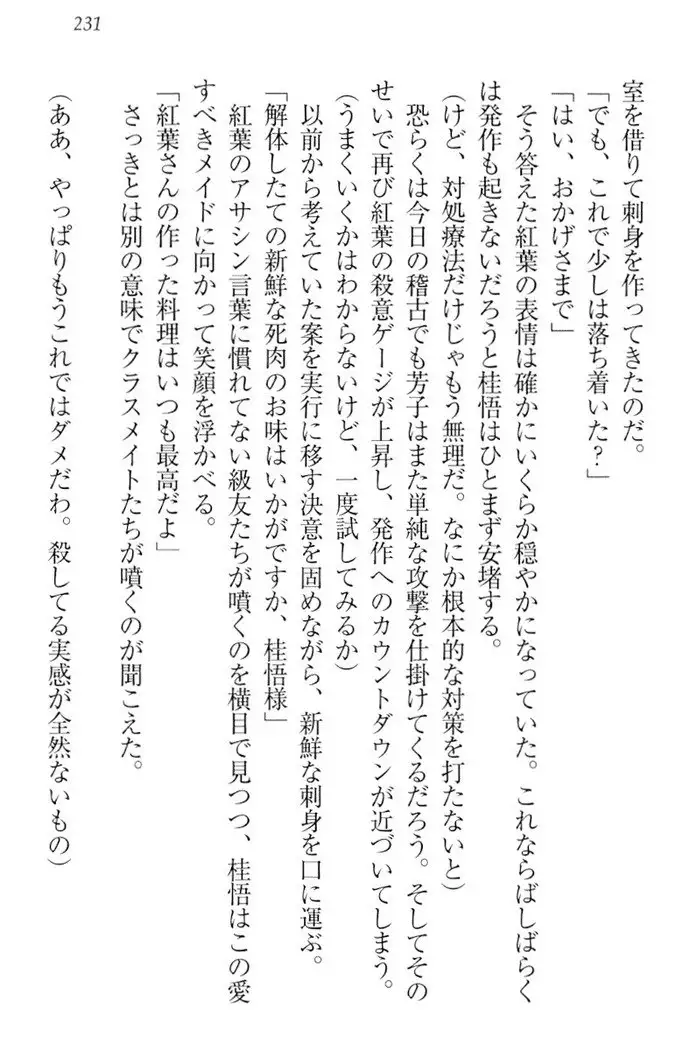 231
室を借りて刺身を作ってきたのだ。
「でも、これで少しは落ち着いた？」
「はい、おかげさまで」
そう答えた紅葉の表情は確かにいくらか穏やかになっていた。これならばしばらく
は発作も起きないだろうと桂悟はひとまず安堵する。
（けど、対処療法だけじゃもう無理だ。なにか根本的な対策を打たないと）
恐らくは今日の稽古でも芳子はまた単純な攻撃を仕掛けてくるだろう。そしてその
せいで再び紅葉の殺意ゲージが上昇し、発作へのカウントダウンが近づいてしまう。
（うまくいくかはわからないけど、一度試してみるか）
以前から考えていた案を実行に移す決意を固めながら、新鮮な刺身を口に運ぶ。
「解体したての新鮮な死肉のお味はいかがですか、桂悟様」
紅葉のアサシン言葉に慣れてない級友たちが噴くのを横目で見つつ、桂悟はこの愛
すべきメイドに向かって笑顔を浮かべる。
「紅葉さんの作った料理はいつも最高だよ」
さっきとは別の意味でクラスメイトたちが噴くのが聞こえた。
（ああ、やっぱりもうこれではダメだわ。殺してる実感が全然ないもの）